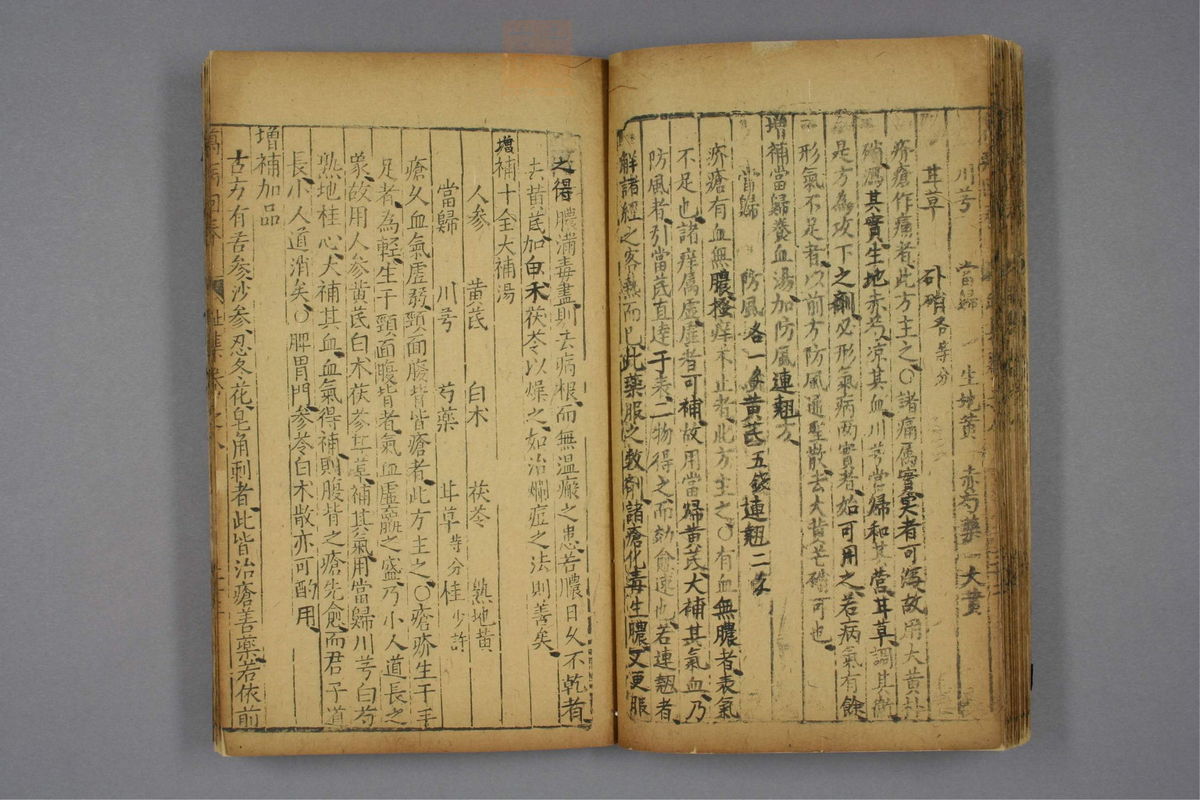 川芎 當歸 生地黃 赤芍藥 大黃
甘草 朴硝各等分
疥瘡作痛者此方主之○諸痛屬實實者可瀉故用大黃朴
硝瀉其實生地赤芍凉其血川芎當歸和其營甘草調其衛
是方為攻下之劑必形氣病氣兩實者始可用之若病氣有餘
形氣不足者以前方防風通聖散去大黃芒硝可也
增補當歸養血湯加防風連翹方
當歸 防風各一兩黃芪五錢連翹二錢
疥瘡有血無膿搔痒不止者此方主之○有血無膿者表氣
不足也諸痒屬虛虛者可補故用當歸黃芪大補其氣血乃
防風者引當芪直達于表二物得之而効愈速也若連翹者
解諸經之客熱而已此藥服之數劑諸瘡化毒生膿又更服
之得膿滿毒盡則去病根而無溫瘢之患若膿日久不乾者
去黃芪加白术茯苓以燥之如治爛痘之法則善矣
增補十全大補湯
人參 黃芪 白术 茯苓 熟地黃
當歸 川芎 芍藥 甘草等分桂少許
瘡久血氣虛發頸面腸背皆瘡者此方主之○瘡疥生于手
足者為輕生于頸面腹背者氣血虛羸之盛乃小人道長之
象故用人參黃芪白术茯苓甘草補其氣用當歸川芎白芍
熟地桂心大補其血血氣得補則腹背之瘡先愈而君子道
長小人道消矣○脾胃門參苓白术散亦可酌用
增補加品
古方有苦參沙參忍冬花皂角刺者此皆治瘡善藥若依前
萬病回春